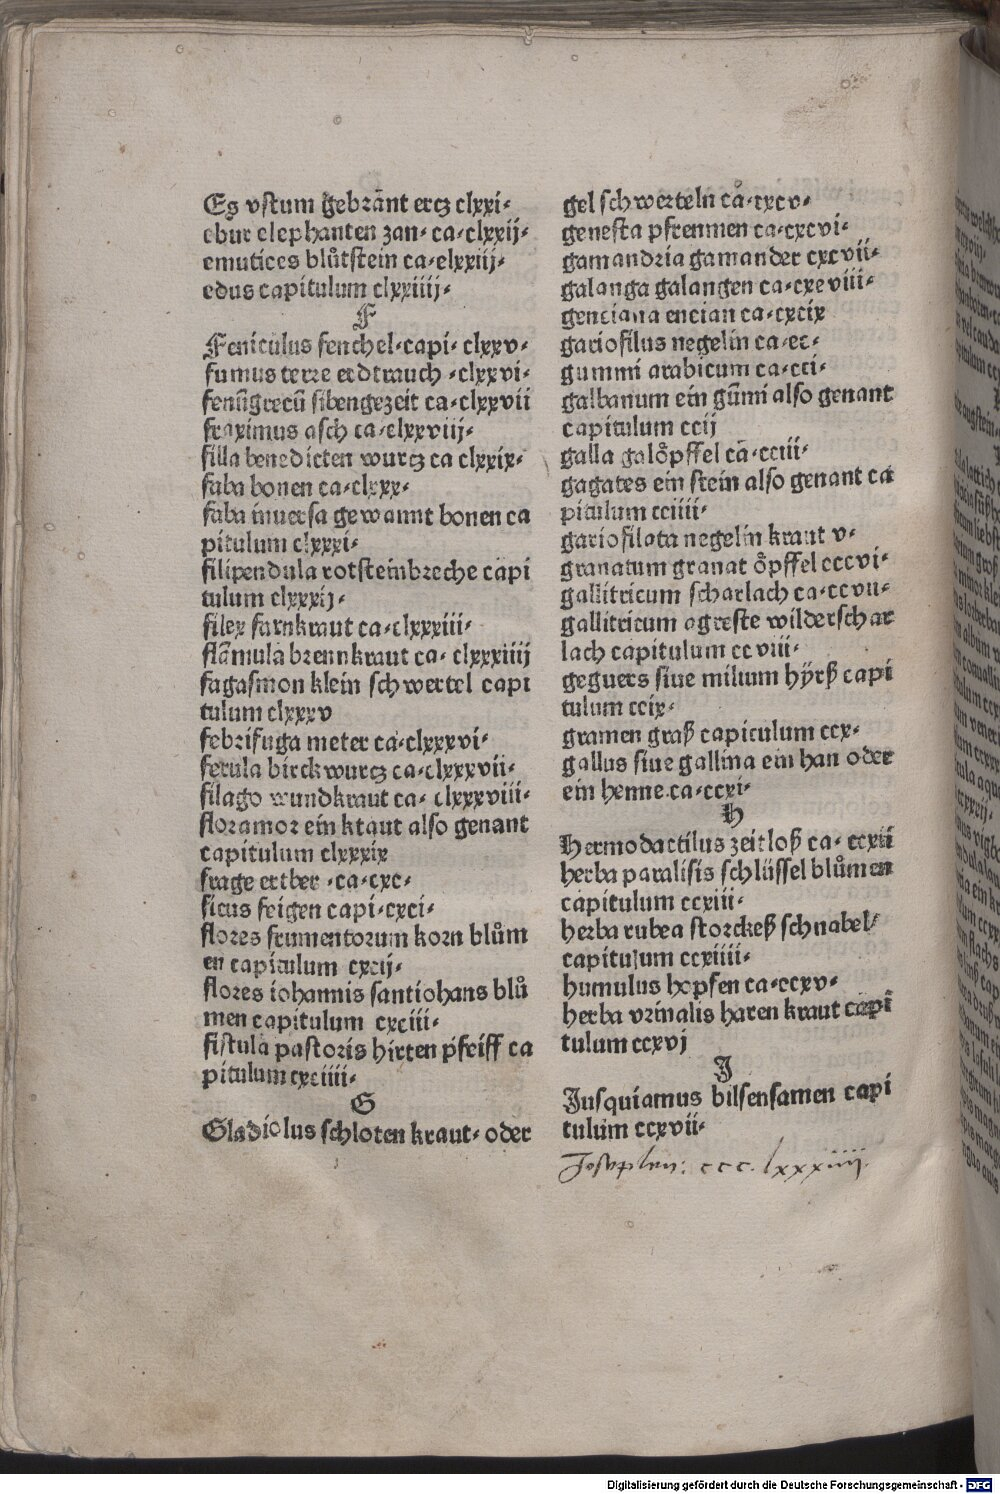 Es vstum gebrānt ertz clxxi·
ebur elephanten zan· ca·clxxij·
emutices blůtstein ca·clxxiij·
edus capitulum clxxiiij·
F
Feniculus fenchel·capi· clxxv·
fumus terre erdtrauch ·clxxvi·
fenūgrecū sibengezeit ca·clxxvii
fraximus asch ca·clxxviij·
filla benedicten wurtz ca clxxix·
faba bonen ca·clxxx·
faba inuersa gewannt bonen ca
pitulum clxxxi·
filipendula rotsteinbreche capi
tulum clxxxij·
filex farnkraut ca·clxxxiii·
flāmula brennkraut ca· clxxxiiij
fagasmon klein schwertel capi
tulum clxxxv
febrifuga meter ca·clxxxvi·
ferula birckwurtz ca·clxxxvii·
filago wundkraut ca· clxxxviii·
floramor ein ktaut also genant
capitulum clxxxix
frage ertber ·ca·cxc·
ficus feigen capi·cxci·
flores frumentorum korn blům
en capitulum cxcij·
flores iohannis santiohans blů
men capitulum cxciii·
fistula pastoris hirten pfeiff ca
pitulum cxciiii·
G
Gladiolus schloten kraut· oder
gel schwerteln ca·cxcv·
genesta pfrenmen ca·cxcvi·
gamandria gamander cxcvii·
galanga galangen ca·cxeviii·
genciana encian ca·cxcix
gariofilus negelin ca·cc·
gummi arabicum ca·cci·
galbanum ein gūmi also genant
capitulum ccij
galla galöpffel ca·cciii·
gagates ein stein also genant ca
pitulum cciiii·
gariofilata negelin kraut v·
granatum granat öpffel cccvi·
gallitricum scharlach ca·ccvii·
gallitricum agreste wilderschar
lach capitulum ccviii·
geguers siue milium hÿrß capi
tulum ccix·
gramen graß capiculum ccx·
gallus siue gallina ein han oder
ein henne.ca·ccxi·
H
Hermodactilus zeitloß ca·ccxii
herba paralisis schlüssel blůmen
capitulum ccxiii·
herba rubea storckeß schnabel·
capitulum ccxiiii·
humulus hopfen ca·ccxv·
herba vrinalis haren kraut capi
tulum ccxvj
J
Jusquiamus bilsensamen capi
tulum ccxvii·
ccc. lxxxiiij.
Digitalisierung gefördert durch die Deutsche Forschungsgemeinschaft - DFG